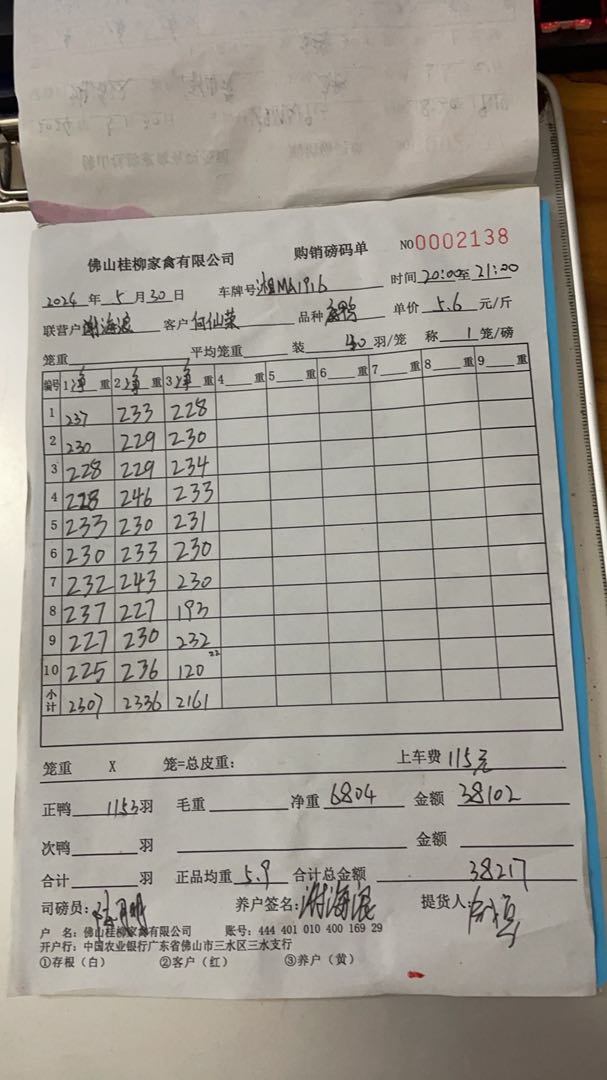 佛山桂柳家禽有限公司 购销磅码单 NO0002138
2024 年 5 月 30 日 车牌号湘MA1916 时间 20:00至 21:00
联营户 谢海浪 客户 何仙荣 品种 单价 5.6 元/斤
笼重 平均笼重 装 40 羽/笼 称 1 笼/磅
编号 1 净 重 2 净 重 3 净 重 4 重 5 重 6 重 7 重 8 重 9 重
1 237 233 228
2 230 229 230
3 228 229 234
4 228 246 233
5 233 230 231
6 230 233 230
7 232 243 230
8 237 227 193
9 227 230 232
10 225 236 120 22
小计 2307 2336 2161
笼重 X 笼=总皮重: 上车费 115元
正鸭 1153 羽 毛重 净重 6804 金额 38102
次鸭 羽 金额
合计 羽 正品均重 5.9 合计总金额 38217
司磅员: 养户签名: 谢海浪 提货人:
户 名: 佛山桂柳家禽有限公司 账号: 444 401 010 400 169 29
开户行: 中国农业银行广东省佛山市三水区三水支行
①存根（白） ②客户（红） ③养户（黄）